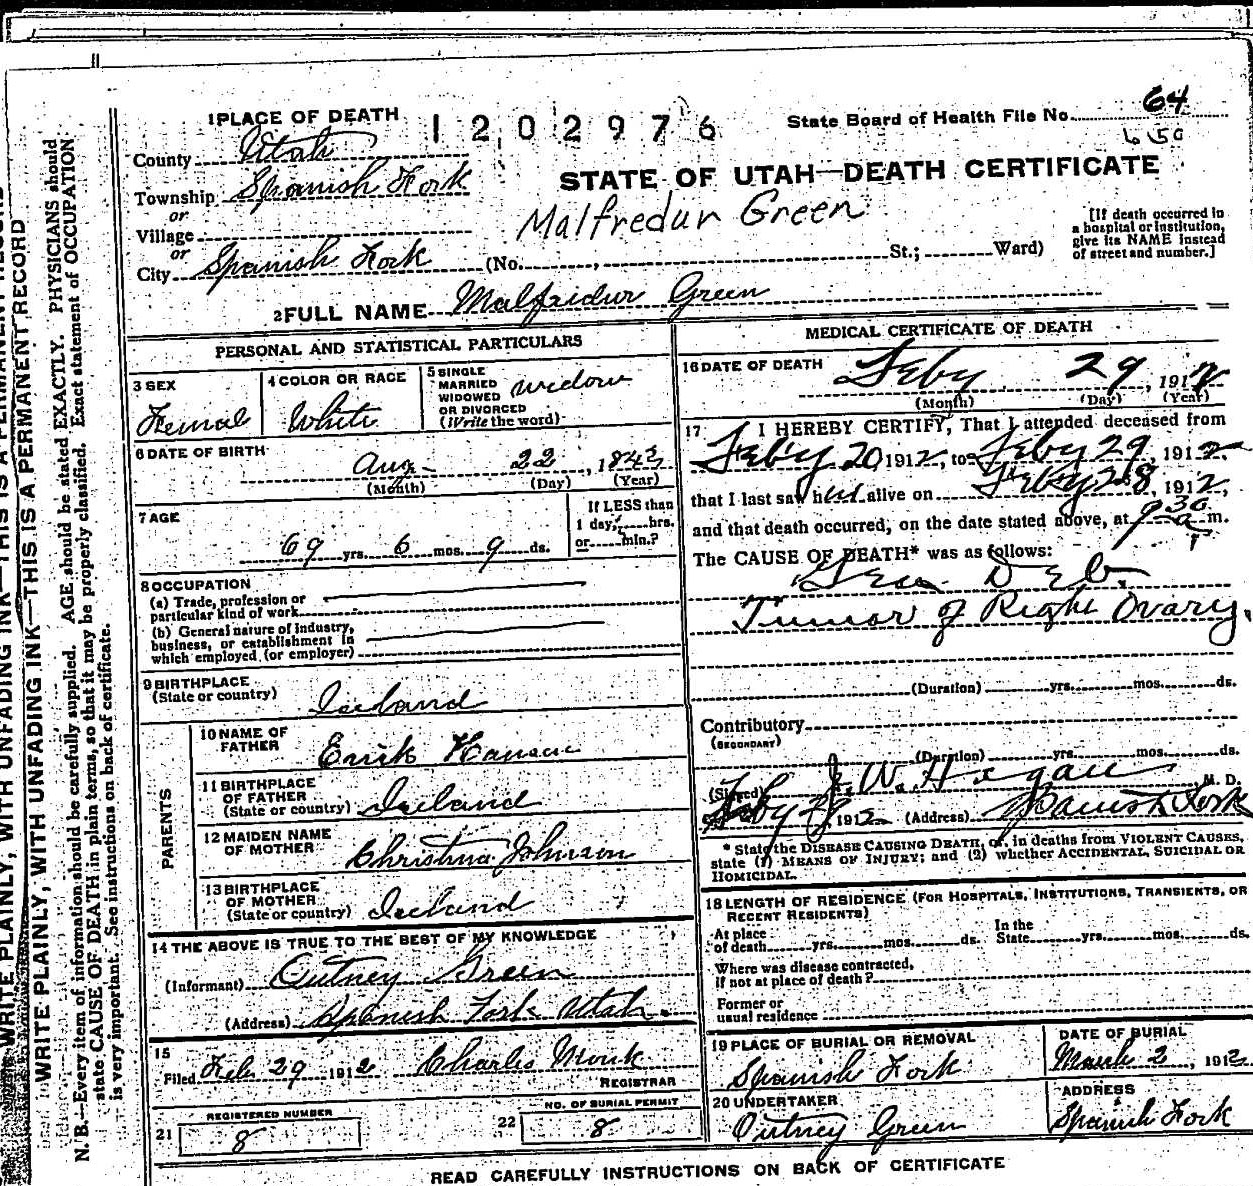 1 PLACE OF DEATH
1202976
State Board of Health File No. 64
6150
County Utah
Township Spanish Fork
or
Village
or
City Spanish Fork (No. , St.; Ward)
STATE OF UTAH—DEATH CERTIFICATE
Malfredur Green
[If death occurred in
a hospital or institution,
give its NAME instead
of street and number.]
2 FULL NAME Malfridur Green
PERSONAL AND STATISTICAL PARTICULARS
3 SEX
Femal
4 COLOR OR RACE
White
5 SINGLE
MARRIED
WIDOWED
OR DIVORCED
(Write the word)
widow
6 DATE OF BIRTH
Aug 22, 1843
(Month) (Day) (Year)
7 AGE
69 yrs. 6 mos. 9 ds.
If LESS than
1 day, hrs.
or min.?
8 OCCUPATION
(a) Trade, profession or
particular kind of work
(b) General nature of industry,
business, or establishment in
which employed (or employer)
9 BIRTHPLACE
(State or country) Iceland
PARENTS
10 NAME OF
FATHER Erick Hansen
11 BIRTHPLACE
OF FATHER
(State or country) Iceland
12 MAIDEN NAME
OF MOTHER Christina Johnson
13 BIRTHPLACE
OF MOTHER
(State or country) Iceland
14 THE ABOVE IS TRUE TO THE BEST OF MY KNOWLEDGE
(Informant) Outney Green
(Address) Spanish Fork Utah.
15
Filed Feb 29 1912 Charles Monk
REGISTRAR
REGISTERED NUMBER
21 8
NO. OF BURIAL PERMIT
22 8
MEDICAL CERTIFICATE OF DEATH
16 DATE OF DEATH Feby 29, 1912
(Month) (Day) (Year)
17 I HEREBY CERTIFY, That I attended deceased from
Feby 20, 1912, to Feby 29, 1912.
that I last saw her alive on Feby 28, 1912,
and that death occurred, on the date stated above, at 9 30 a m.
The CAUSE OF DEATH* was as follows:
Tumor of Right Ovary.
(Duration) yrs. mos. ds.
Contributory
(SECONDARY)
(Duration) yrs. mos. ds.
(Signed) J. W. Hagan, M. D.
Feby 29, 1912 (Address) Spanish Fork
* State the DISEASE CAUSING DEATH, or, in deaths from VIOLENT CAUSES,
state (1) MEANS OF INJURY; and (2) whether ACCIDENTAL, SUICIDAL OR
HOMICIDAL.
18 LENGTH OF RESIDENCE (FOR HOSPITALS, INSTITUTIONS, TRANSIENTS, OR
RECENT RESIDENTS)
At place
of death yrs. mos. ds.
In the
State yrs. mos. ds.
Where was disease contracted,
if not at place of death?
Former or
usual residence
19 PLACE OF BURIAL OR REMOVAL
Spanish Fork
DATE OF BURIAL
March 2, 1912
20 UNDERTAKER
Outney Green
ADDRESS
Spanish Fork
READ CAREFULLY INSTRUCTIONS ON BACK OF CERTIFICATE
WRITE PLAINLY, WITH UNFADING INK—THIS IS A PERMANENT RECORD
WRITE PLAINLY, WITH UNFADING INK—THIS IS A PERMANENT RECORD
N. B.—Every item of information should be carefully supplied. AGE should be stated EXACTLY. PHYSICIANS should
state CAUSE OF DEATH in plain terms, so that it may be properly classified. Exact statement of OCCUPATION
is very important. See instructions on back of certificate.